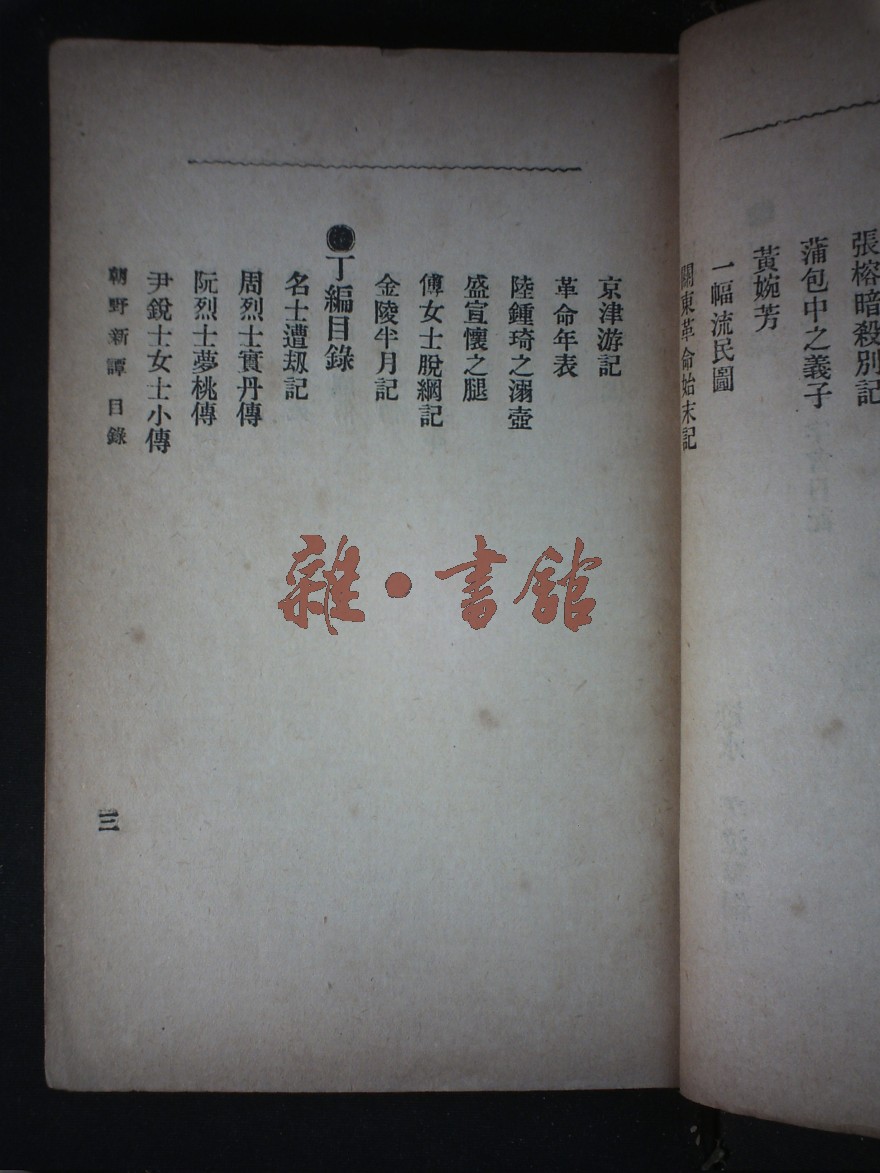 張榕暗殺別記
蒲包中之義子
黃婉芳
一幅流民圖
關東革命始末記
京津游記
革命年表
陸鍾琦之溺壺
盛宣懷之腿
傅女士脫網記
金陵半月記
丁編目錄
名士遭刼記
周烈士實丹傳
阮烈士夢桃傳
尹銳士女士小傳
朝野新譚 目錄
三
雜·書館